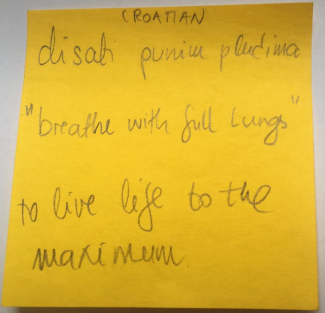 (CROATIAN)
disati punim plućima
"breathe with full lungs"
to live life to the
maximum.